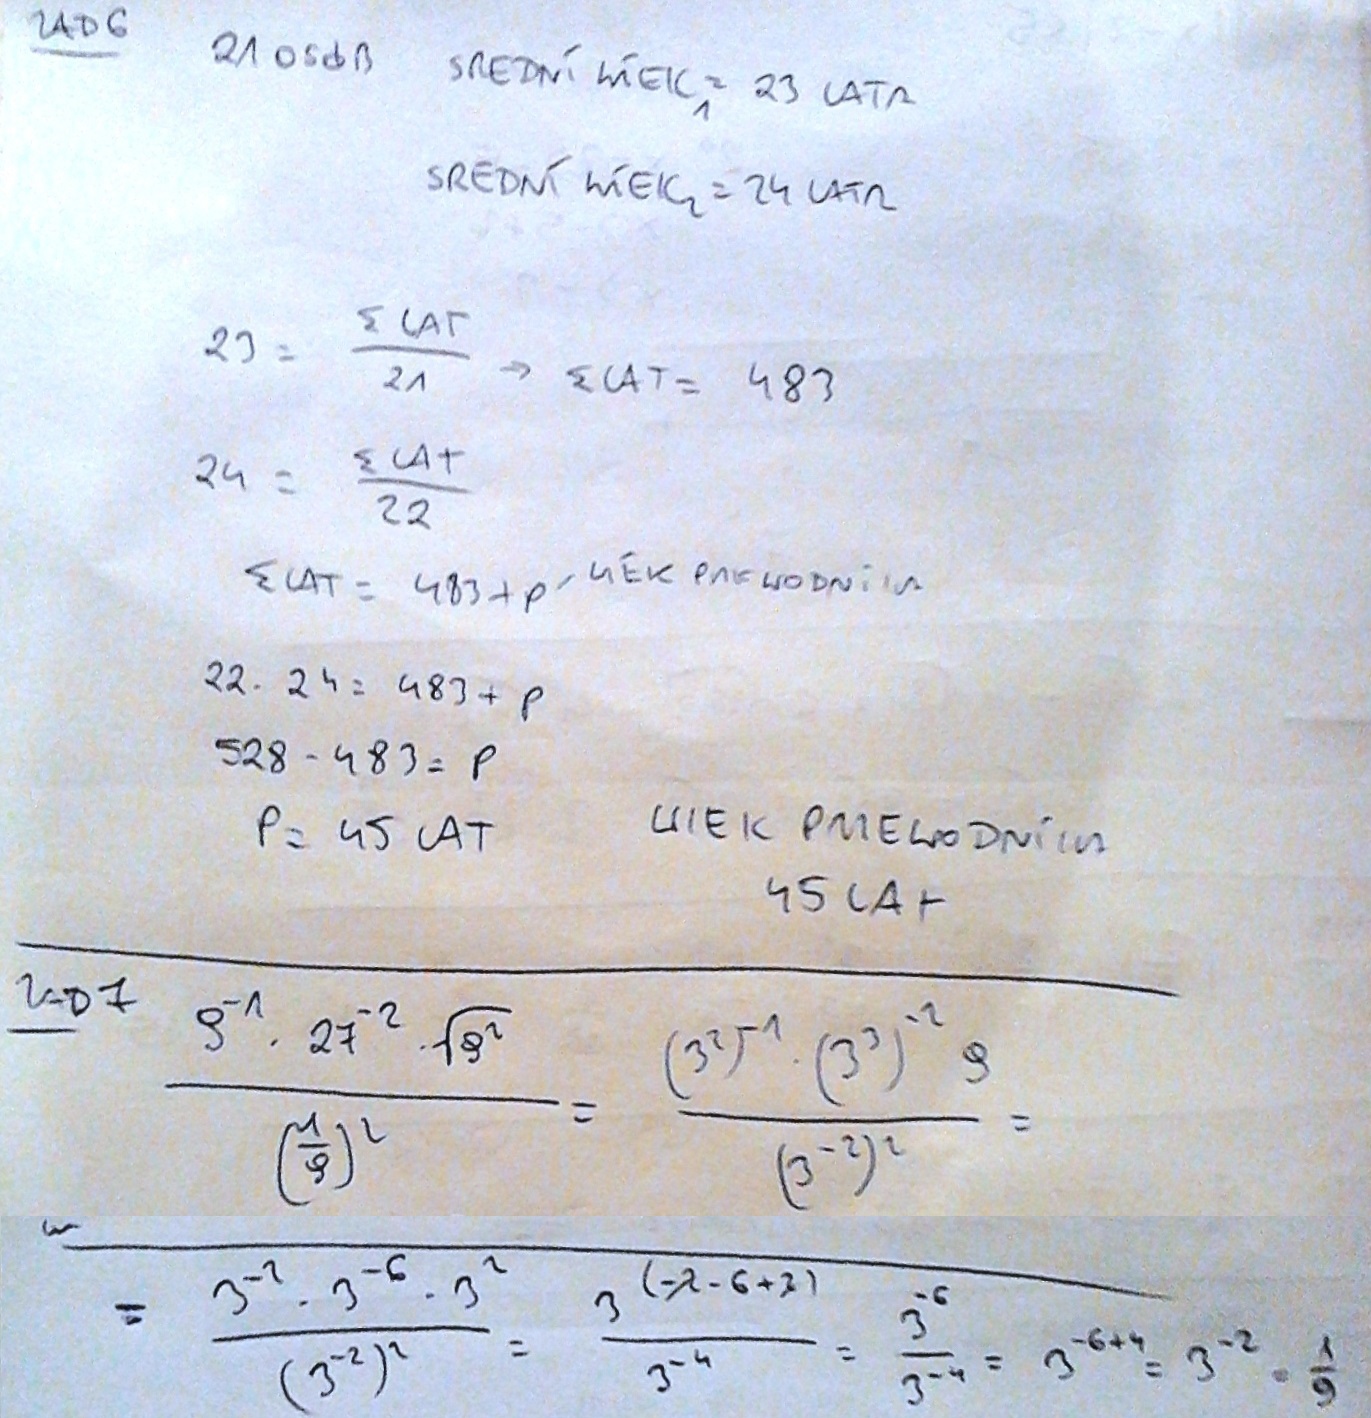 ZAD 6
21 OSÓB ŚREDNI WIEK₁ = 23 LATA
ŚREDNI WIEK₂ = 24 LATA
23 = Σ LAT / 21 → Σ LAT = 483
24 = Σ LAT / 22
Σ LAT = 483 + p - WIEK PRZEWODNIKA
22 · 24 = 483 + p
528 - 483 = p
P = 45 LAT WIEK PRZEWODNIKA
45 LAT
ZAD 7
9⁻¹ · 27⁻² · √9² / (1/9)² = (3²)⁻¹ · (3³)⁻² 9 / (3⁻²)² =
= 3⁻² · 3⁻⁶ · 3² / (3⁻²)² = 3^(-2-6+2) / 3⁻⁴ = 3⁻⁶ / 3⁻⁴ = 3⁻⁶⁺⁴ = 3⁻² = 1/9